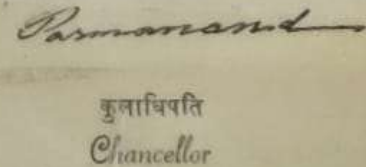 Parmanand
कुलाधिपति
Chancellor